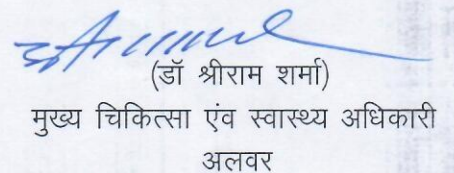 (डॉ श्रीराम शर्मा)
मुख्य चिकित्सा एंव स्वास्थ्य अधिकारी
अलवर